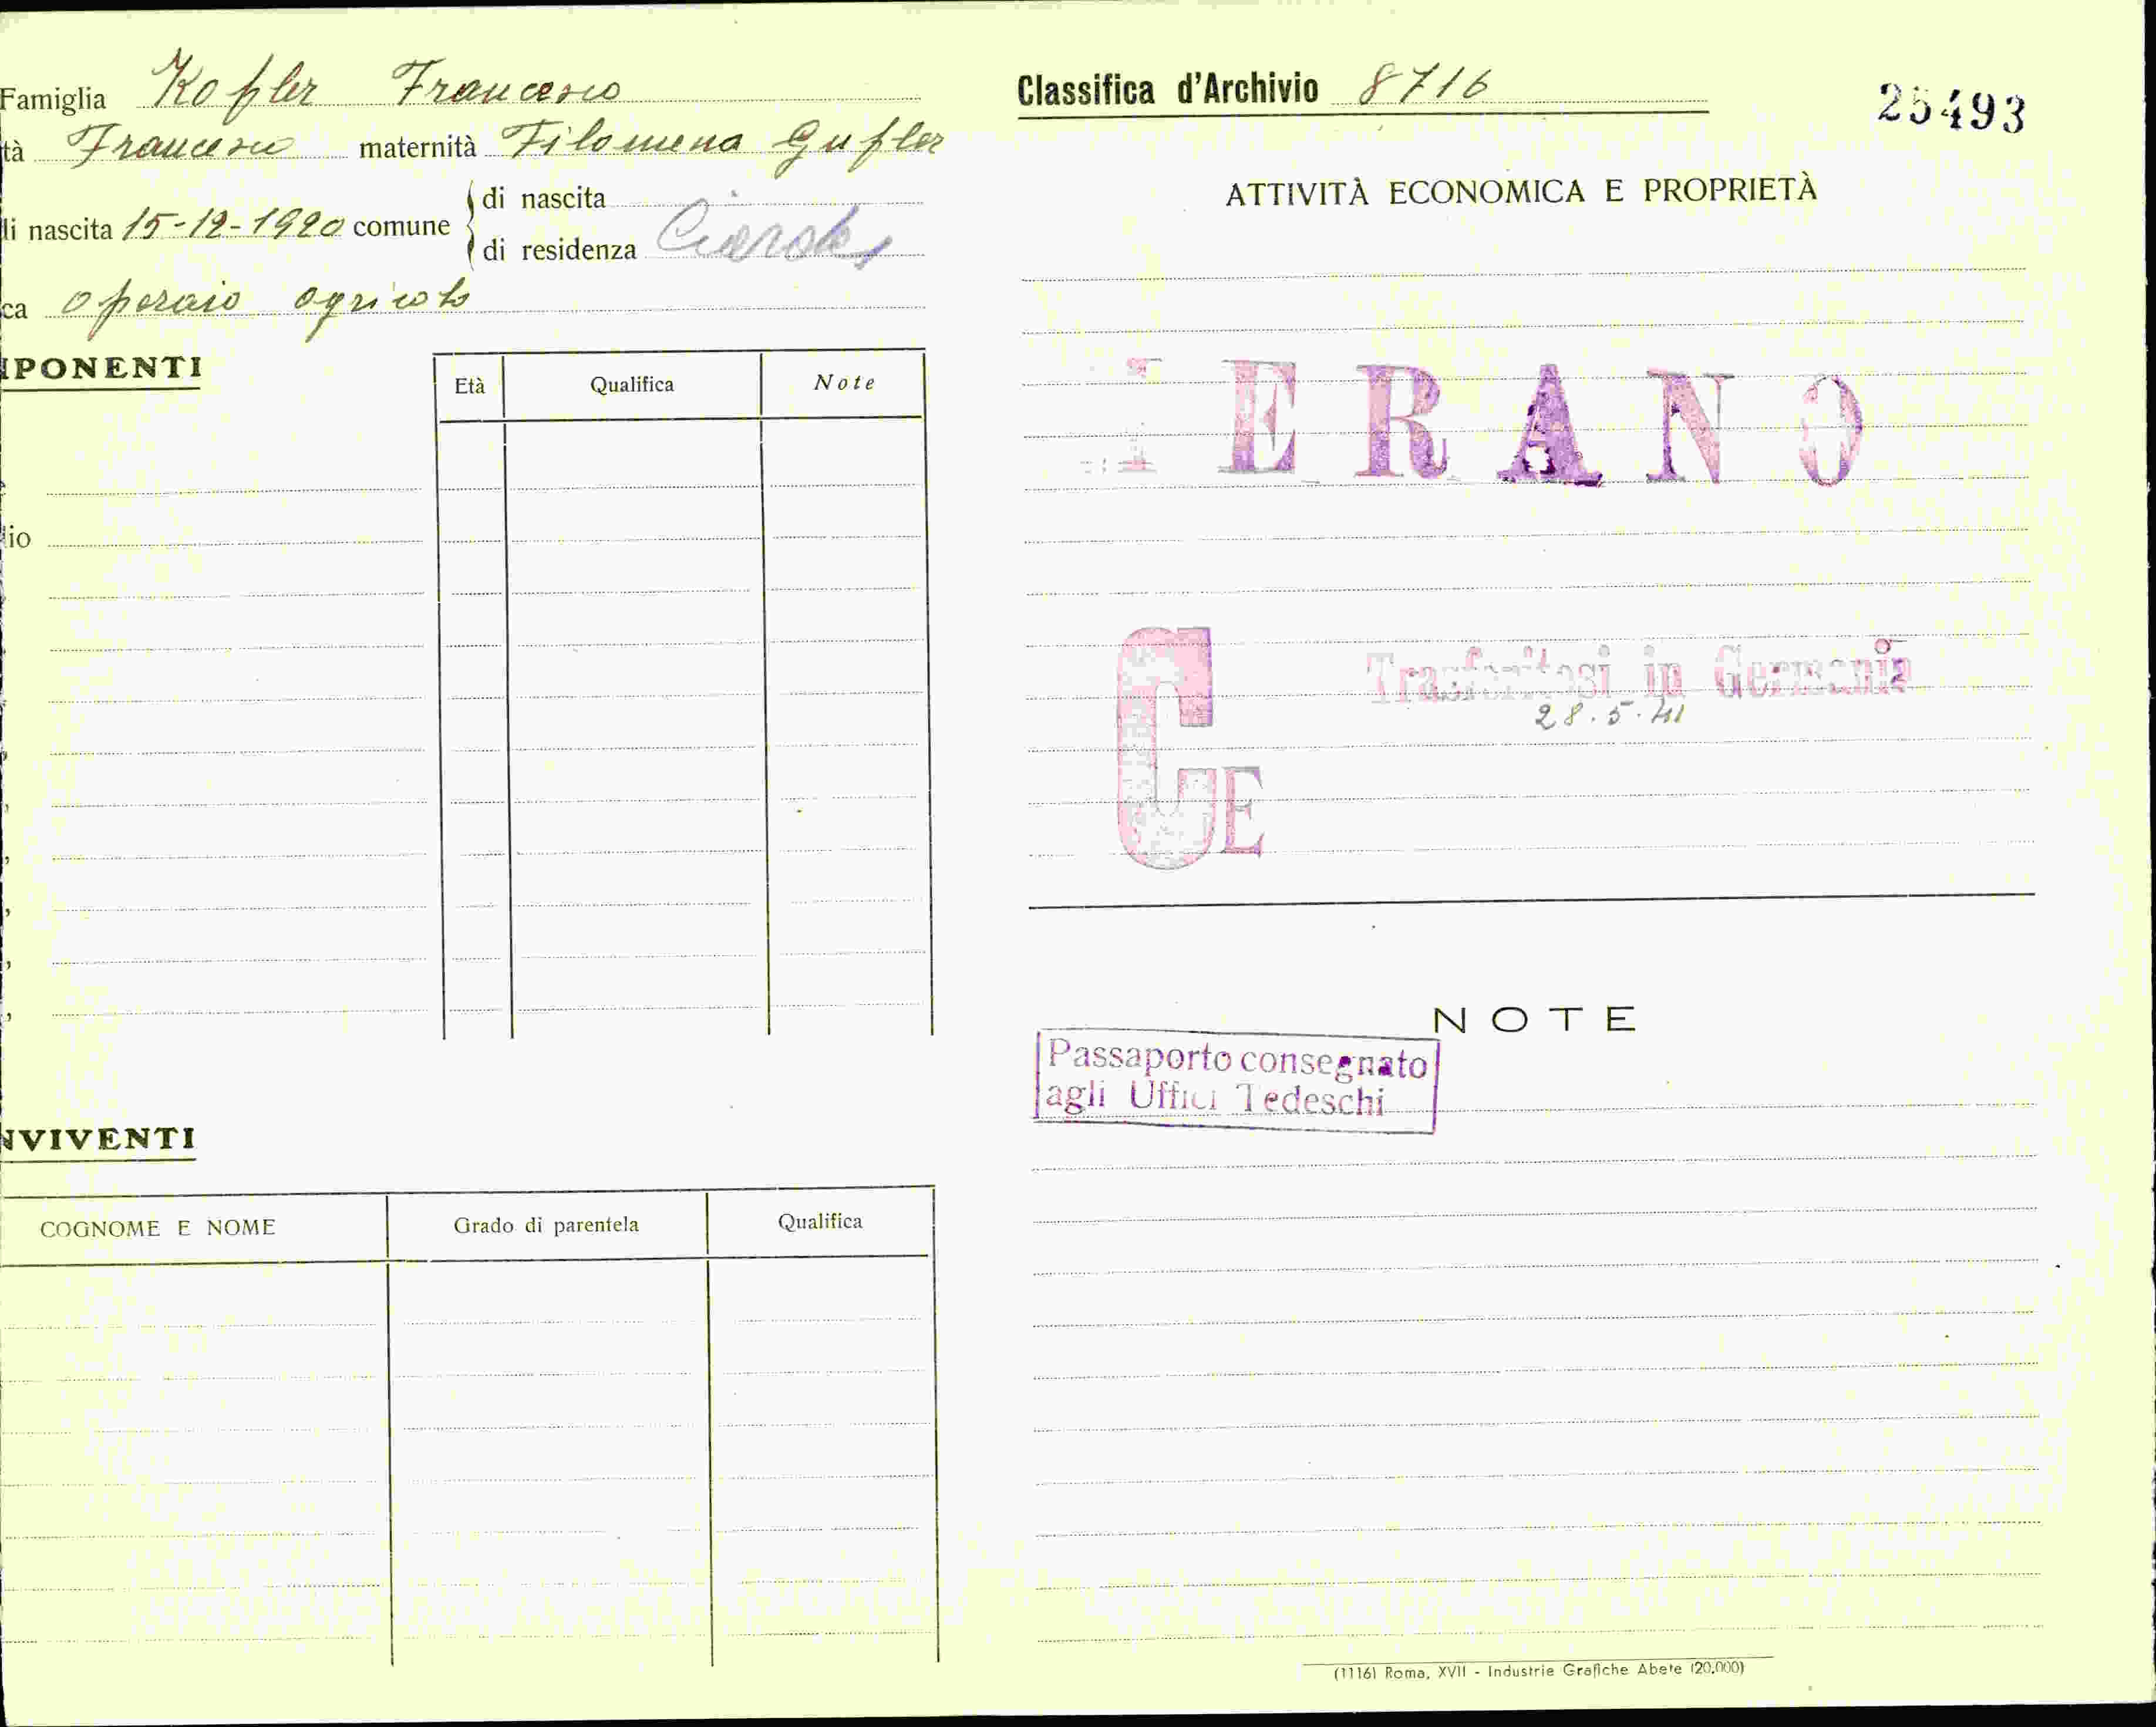 Famiglia Kofler Francesco
tà Francesco maternità Filomena Gufler
di nascita
li nascita 15-12-1920 comune
di residenza
ca operaio agricolo
PONENTI
Età Qualifica Note
lio
NVIVENTI
COGNOME E NOME Grado di parentela Qualifica
Classifica d'Archivio 8716
25493
ATTIVITÀ ECONOMICA E PROPRIETÀ
ERANO
Trasferitosi in Germania
28.5.41
CE
NOTE
Passaporto consegnato
agli Uffici Tedeschi
(1116) Roma, XVII - Industrie Grafiche Abete (20.000)